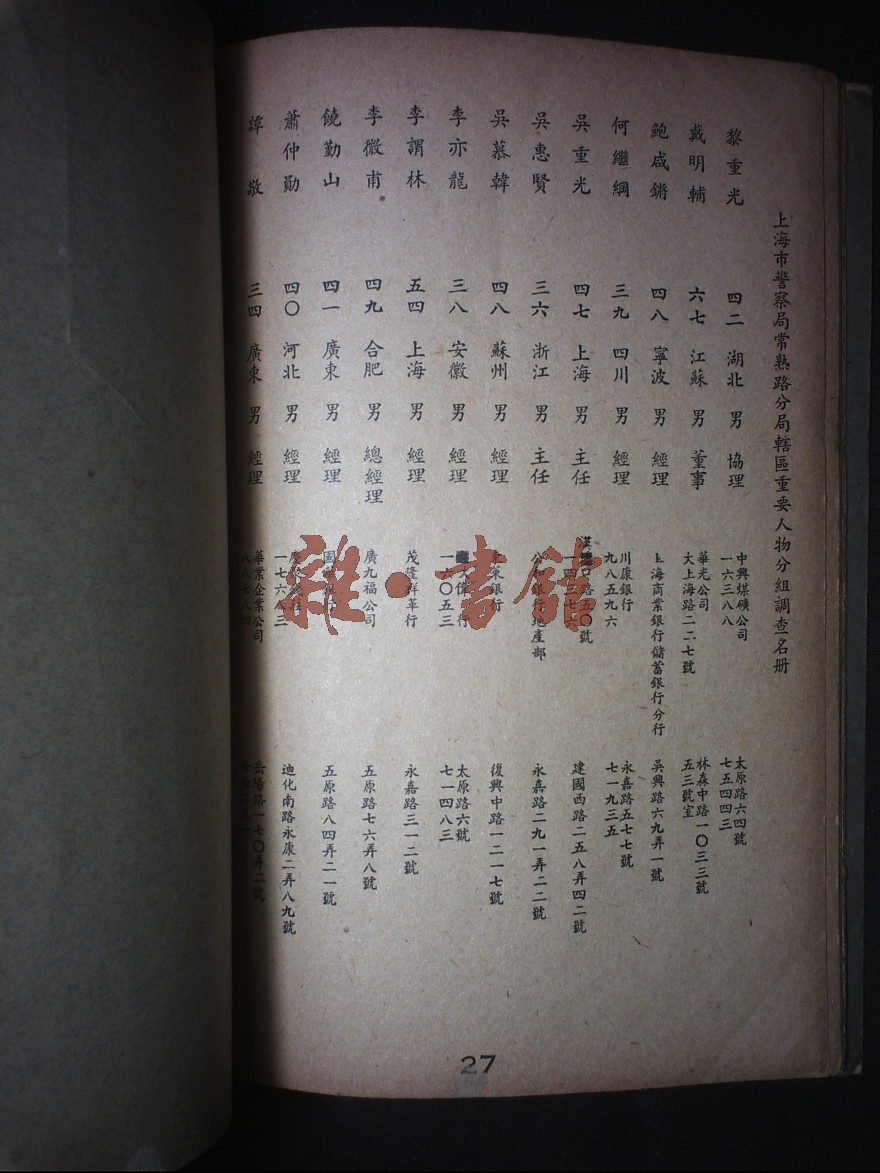 上海市警察局常熟路分局轄區重要人物分組調查名册
黎重光 四二 湖北 男 協理 中興煤礦公司 一六三八八 太原路六四號 七五四四三
戴明輔 六七 江蘇 男 董事 華光公司 大上海路二二七號 林森中路一〇三三號 五三號室
鮑咸鏘 四八 寧波 男 經理 上海商業銀行儲蓄銀行分行 吳興路六九弄一號
何繼綱 三九 四川 男 經理 川康銀行 九八五九六 永嘉路五七七號 七一九三五
吳重光 四七 上海 男 主任 建國西路二五八弄四二號
吳惠賢 三六 浙江 男 主任 銀行地產部 永嘉路二九一弄二二號
吳慕韓 四八 蘇州 男 經理 萊銀行 復興中路一二一七號
李亦龍 三八 安徽 男 經理 一一〇五三 太原路六號 七一四八三
李謂林 五四 上海 男 經理 茂隆鮮革行 永嘉路三一二號
李微甫 四九 合肥 男 總經理 廣九福公司 五原路七六弄八號
饒勤山 四一 廣東 男 經理 五原路八四弄二一號
蕭仲勛 四〇 河北 男 經理 一七六八三 迪化南路永康二弄八九號
譚敬 三四 廣東 男 經理 華業企業公司 岳陽路一七〇弄二號
27
雜·書館